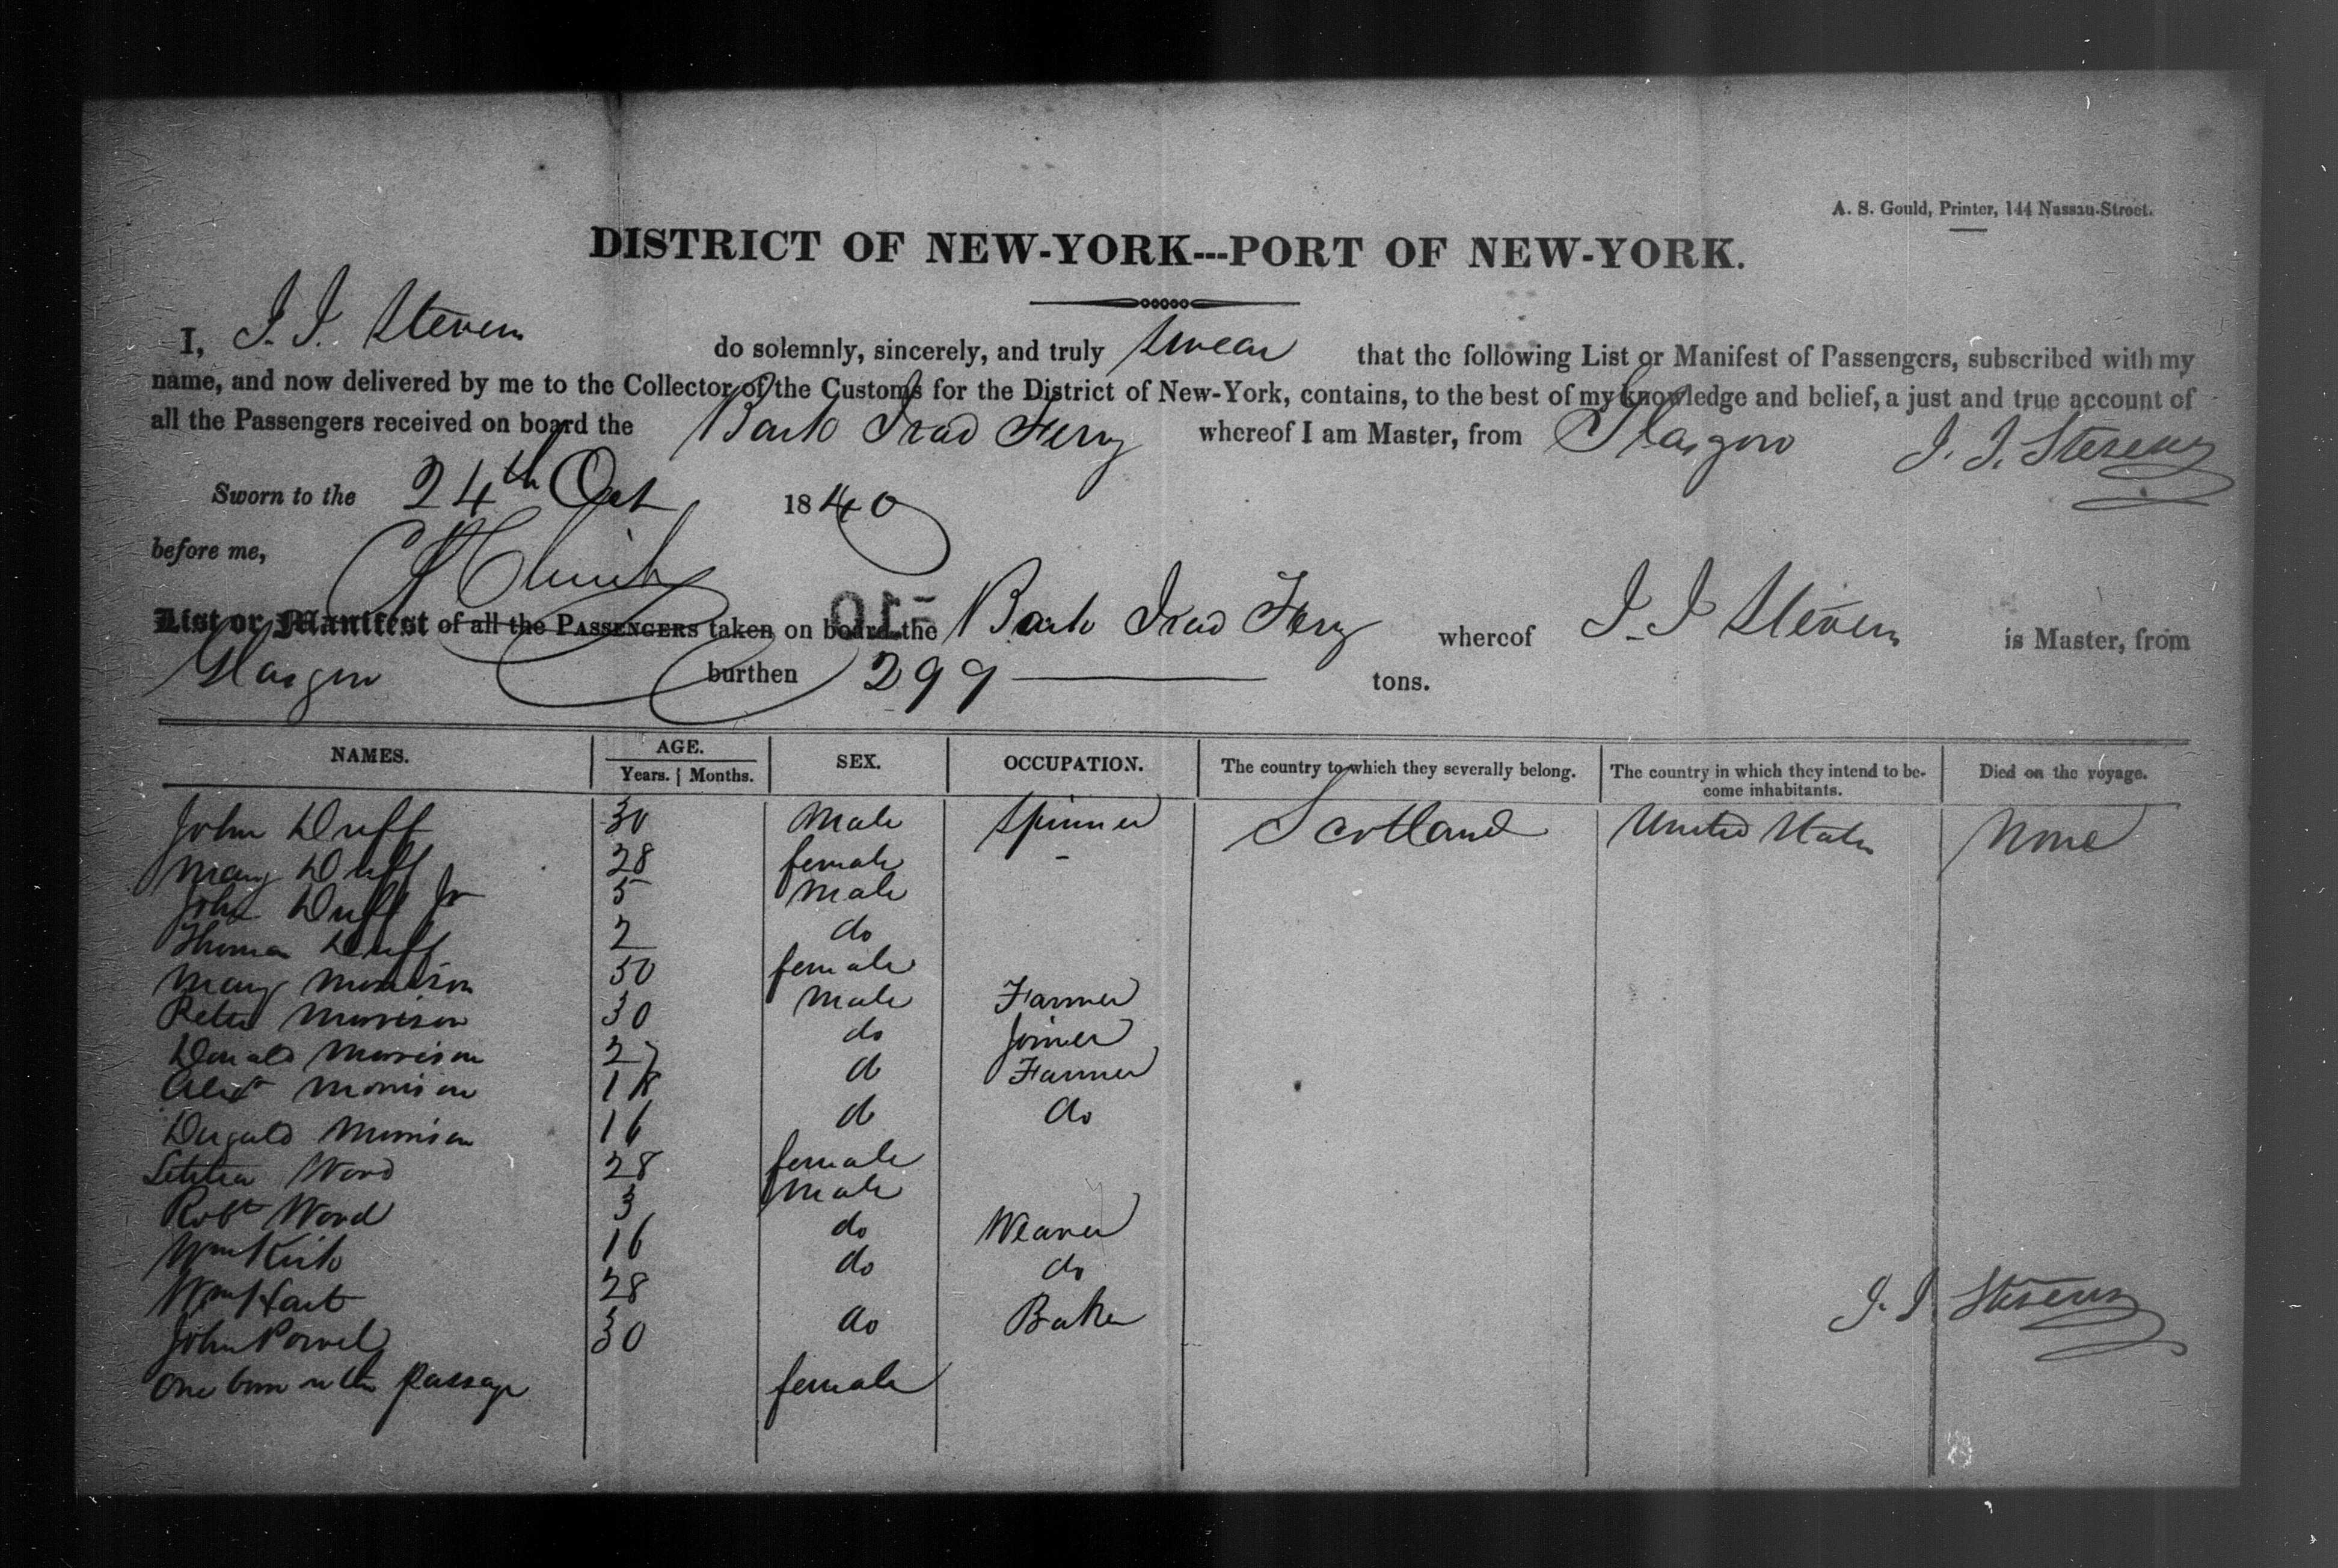 A. S. Gould, Printer, 144 Nassau-Street.
DISTRICT OF NEW-YORK---PORT OF NEW-YORK.
I, J. J. Stevens do solemnly, sincerely, and truly swear that the following List or Manifest of Passengers, subscribed with my
name, and now delivered by me to the Collector of the Customs for the District of New-York, contains, to the best of my knowledge and belief, a just and true account of
all the Passengers received on board the Bark Irad Ferry whereof I am Master, from Glasgow J. J. Stevens
Sworn to the 24th Oct 1840
before me,
List or Manifest of all the PASSENGERS taken on board the Bark Irad Ferry whereof J. J Stevens is Master, from
Glasgow burthen 299 tons.
NAMES. AGE. Years. | Months. SEX. OCCUPATION. The country to which they severally belong. The country in which they intend to become inhabitants. Died on the voyage.
John Duff 30 Male Spinner Scotland United States None
Mary Duff 28 female -
John Duff Jr 5 Male
Thomas Duff 2 do
Mary Morrison 50 female
Peter Morrison 30 Male Farmer
Donald Morrison 27 do Joiner
Alexr Morrison 18 do Farmer
Dugald Morrison 16 do do
Letitia Wood 28 female
Robt Wood 3 Male
Wm Kirk 16 do Weaver
Wm Hart 28 do do
John Powel 30 do Baker
One born on the passage female
J. J. Stevens